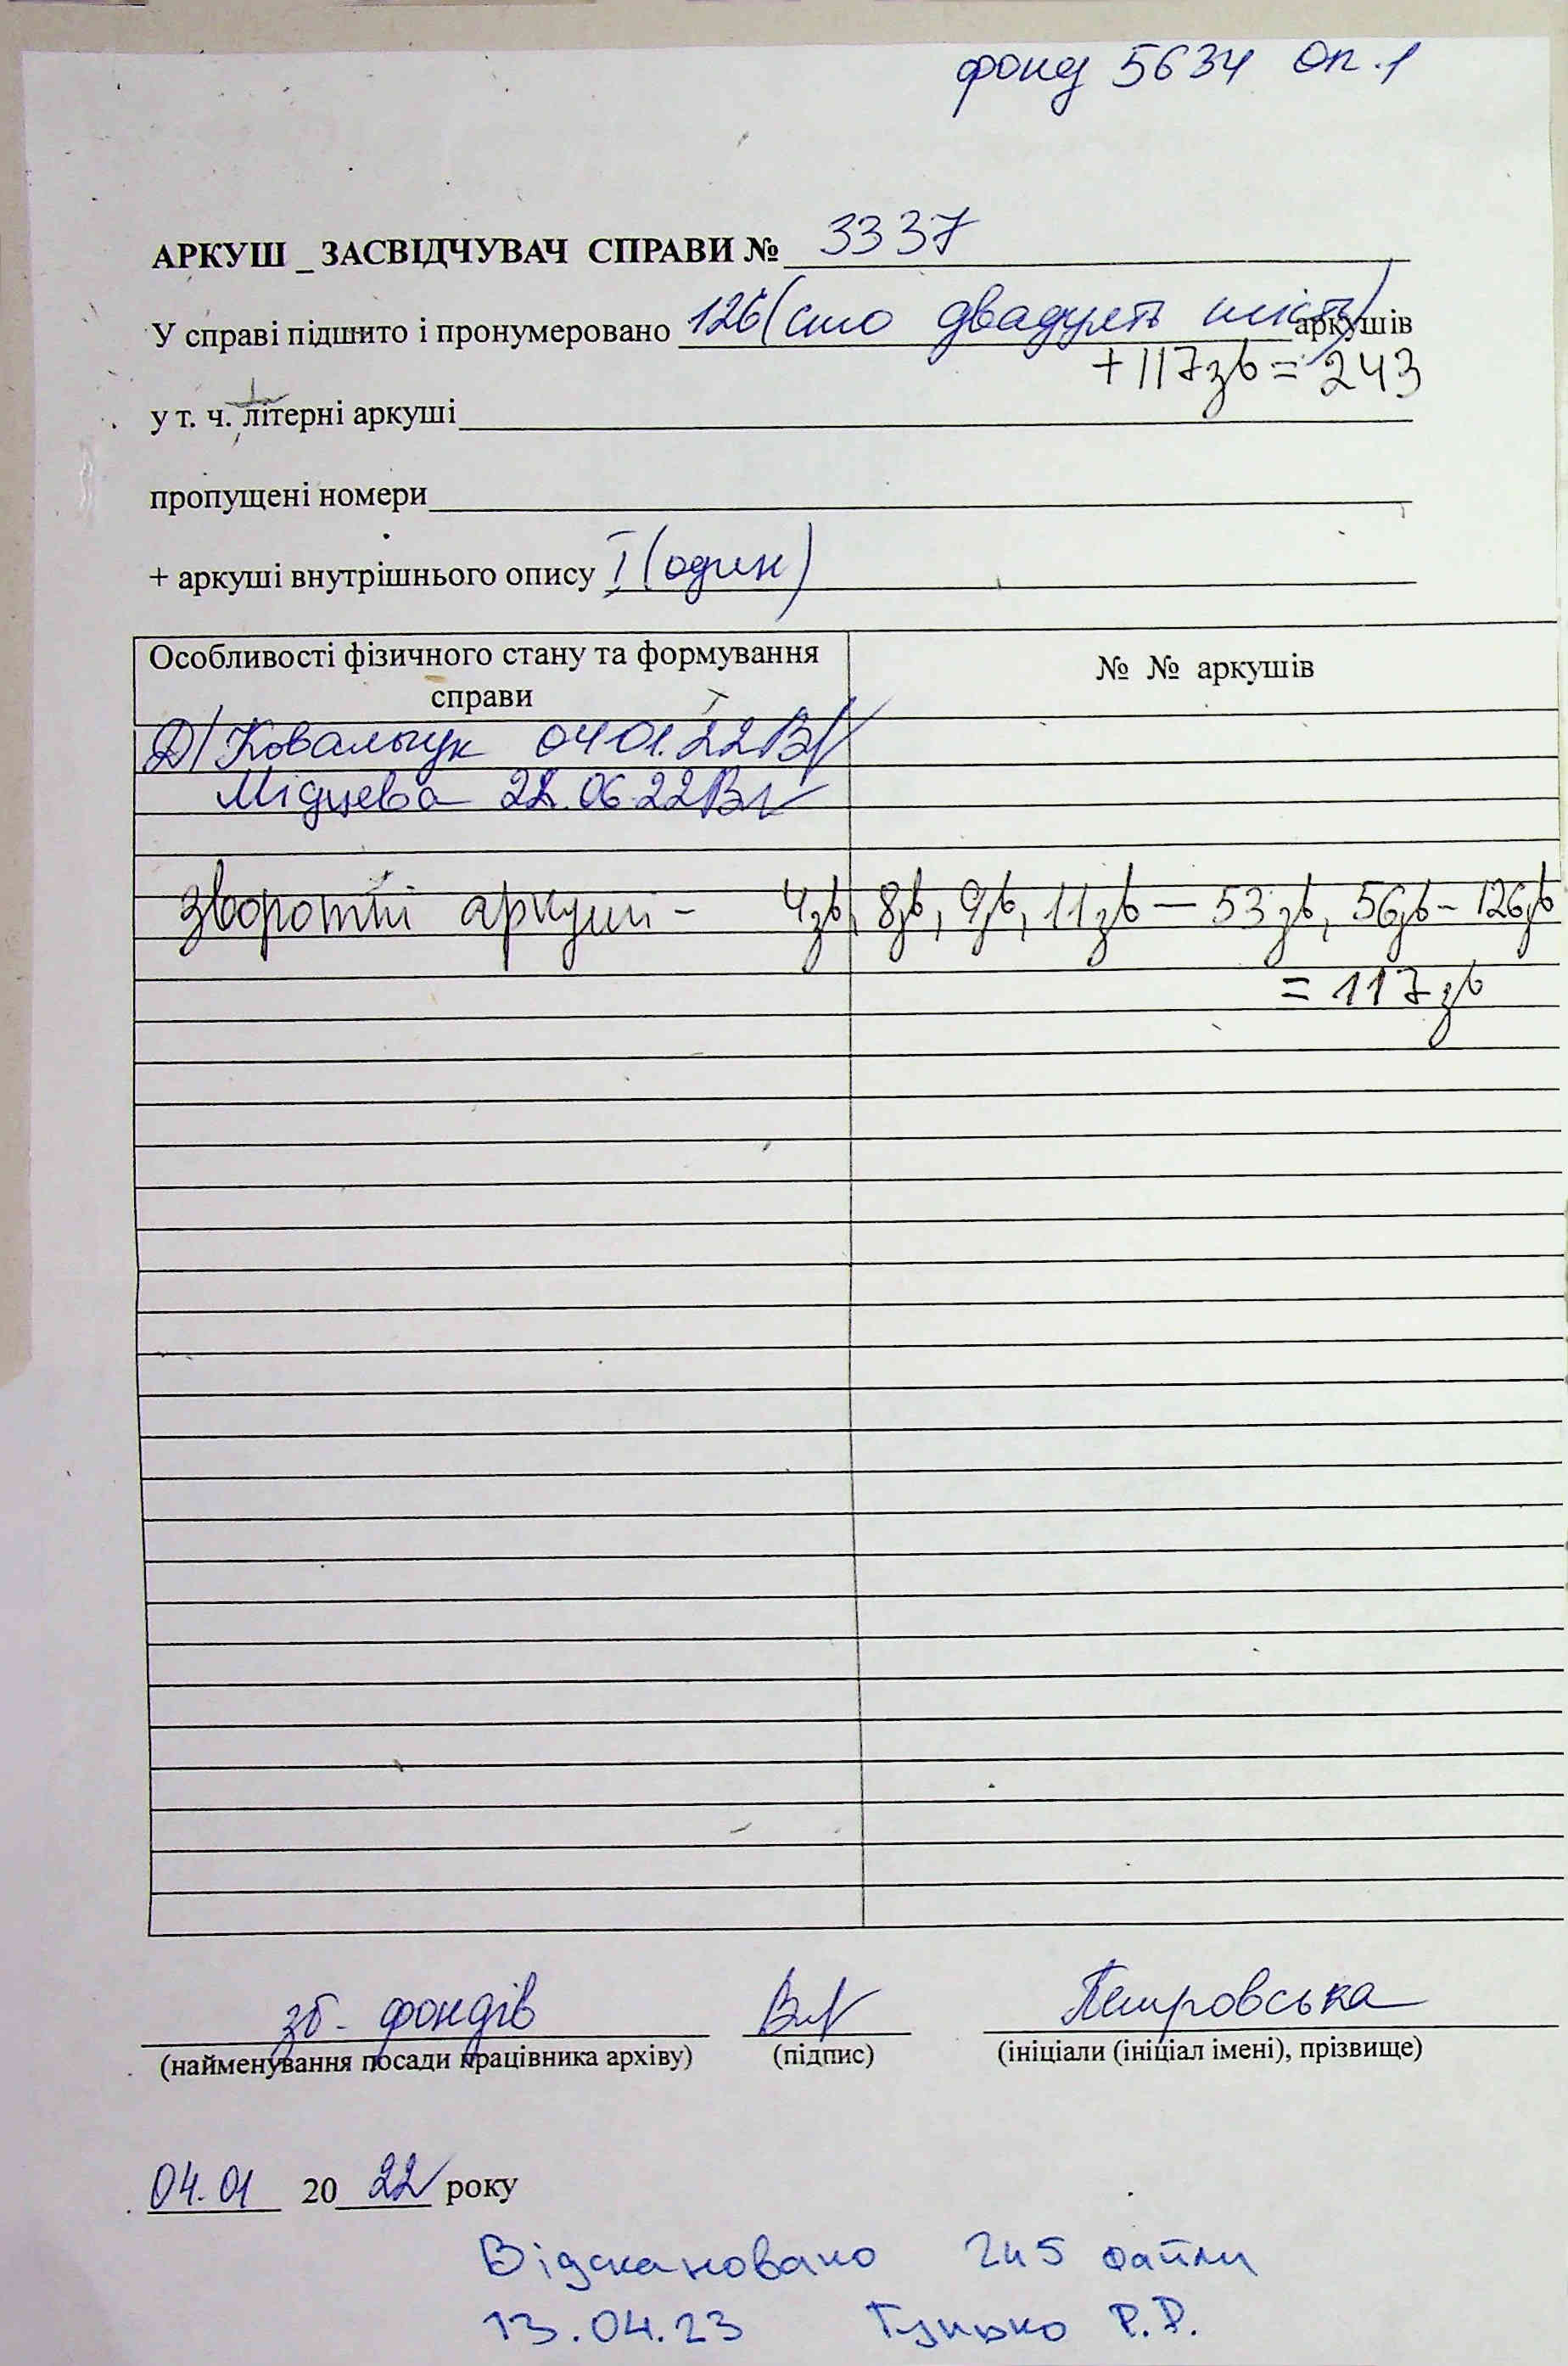 фонд 5634 Оп.1
АРКУШ _ ЗАСВІДЧУВАЧ СПРАВИ № 3337
У справі підшито і пронумеровано 126 (сто двадцять шість) аркушів
+117зв = 243
у т. ч. літерні аркуші
пропущені номери
+ аркуші внутрішнього опису I (один)
Особливості фізичного стану та формування справи
№ № аркушів
Ковальчук 04.01.22
22
зворотні аркуші - 4зв, 8зв, 9зв, 11зв — 53зв, 56зв - 126зв
= 117зв
зб. фондів Петровська
(найменування посади працівника архіву) (підпис) (ініціали (ініціал імені), прізвище)
04.01 2022 року
Відскановано 245 файли
13.04.23 Гунько Р.Р.